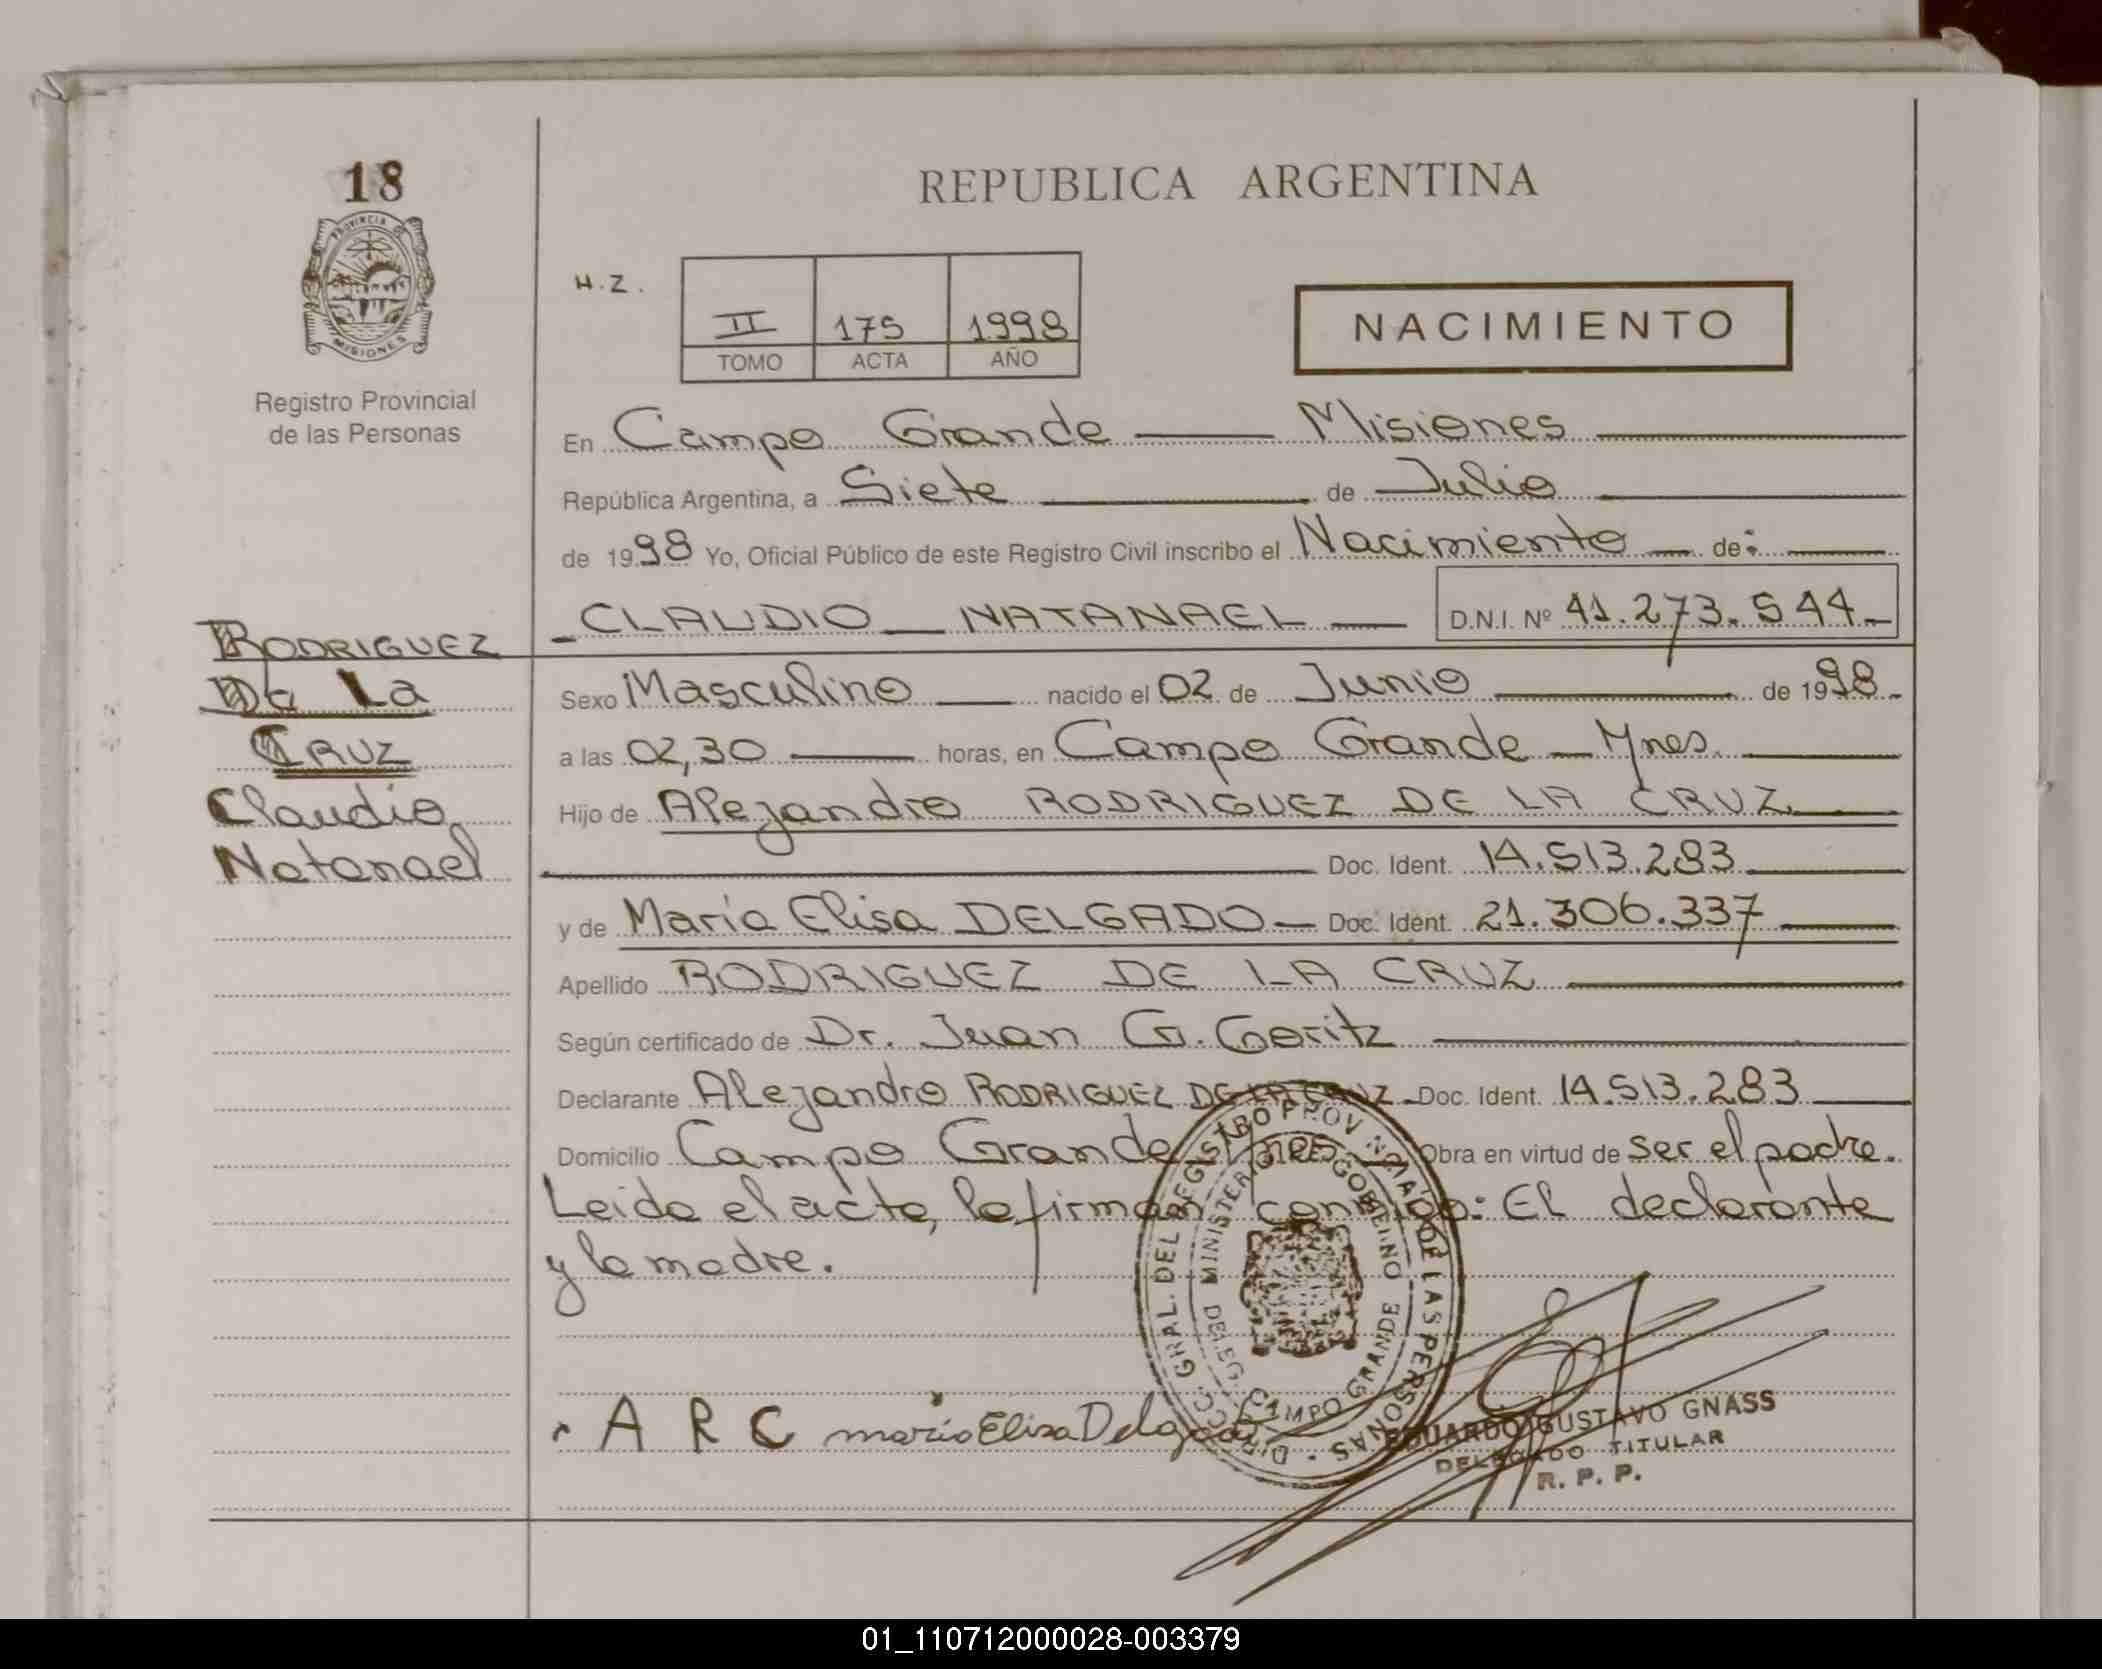 18
PROVINCIA
MISIONES
Registro Provincial
de las Personas
REPUBLICA ARGENTINA
H.Z.
II 175 1998
TOMO ACTA AÑO
NACIMIENTO
En Campo Grande Misiones
República Argentina, a Siete de Julio
de 1998 Yo, Oficial Público de este Registro Civil inscribo el Nacimiento de:
CLAUDIO NATANAEL D.N.I. Nº 41.273.544
RODRIGUEZ
De La
CRUZ
Claudio
Natanael
Sexo Masculino nacido el 02 de Junio de 1998
a las 02,30 horas, en Campo Grande Mnes.
Hijo de Alejandro RODRIGUEZ DE LA CRUZ
Doc. Ident. 14.513.283
y de María Elisa DELGADO Doc. Ident. 21.306.337
Apellido RODRIGUEZ DE LA CRUZ
Según certificado de Dr. Juan G. Goritz
Declarante Alejandro RODRIGUEZ DE LA CRUZ Doc. Ident. 14.513.283
Domicilio Campo Grande Mnes Obra en virtud de ser el padre.
Leida el acta, la firman conmigo: El declarante
y la madre.
DIRECC. GRAL. DEL REGISTRO PROV DE LAS PERSONAS
MINISTERIO GOBIERNO
DELEG. CAMPO GRANDE
A R C maria Elisa Delgado
EDUARDO GUSTAVO GNASS
DELEGADO TITULAR
R. P. P.
01_110712000028-003379